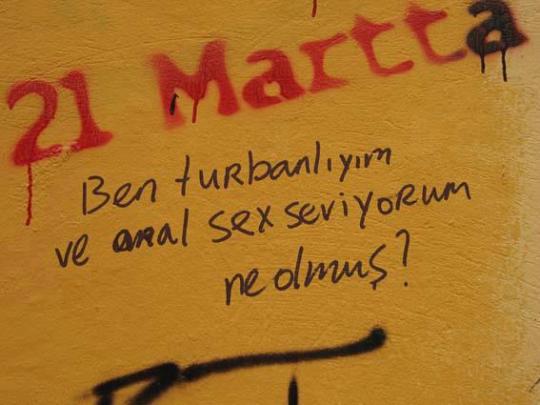 21 Martta
Ben turbanlıyım
ve anal sex seviyorum
ne olmuş?